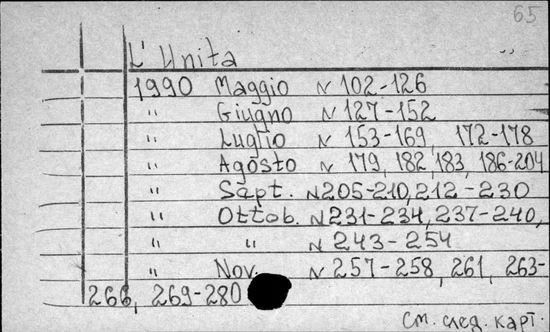 65
L'Unita
1990 Maggio N 102-126
" Giugno N 127-152
" Luglio N 153-169, 172-178
" Agosto N 179, 182, 183, 186-204
" Sapt. N 205-210, 212-230
" Ottob. N 231-234, 237-240,
" " N 243-254
" Nov. N 257-258, 261, 263-
266, 269-280
См. след. карт.